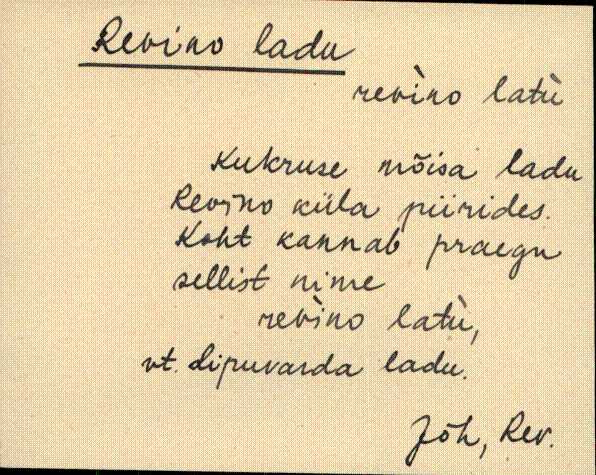 Revino ladu
revìno latù
Kukruse mõisa ladu
Revino küla piirides.
Koht kannab praegu
sellist nime
revìno latù,
vt. Lipuvarda ladu.
Jõh, Rev.